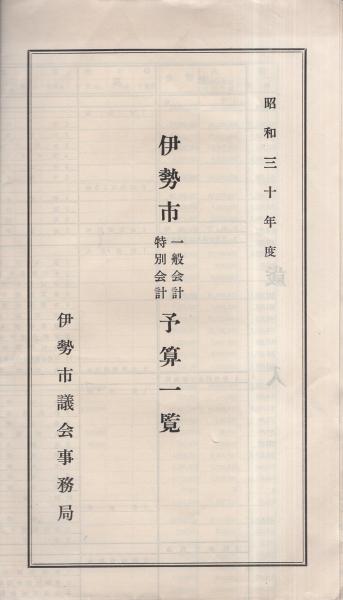 昭和三十年度
伊勢市 一般会計 特別会計 予算一覧
伊勢市議会事務局
歳入